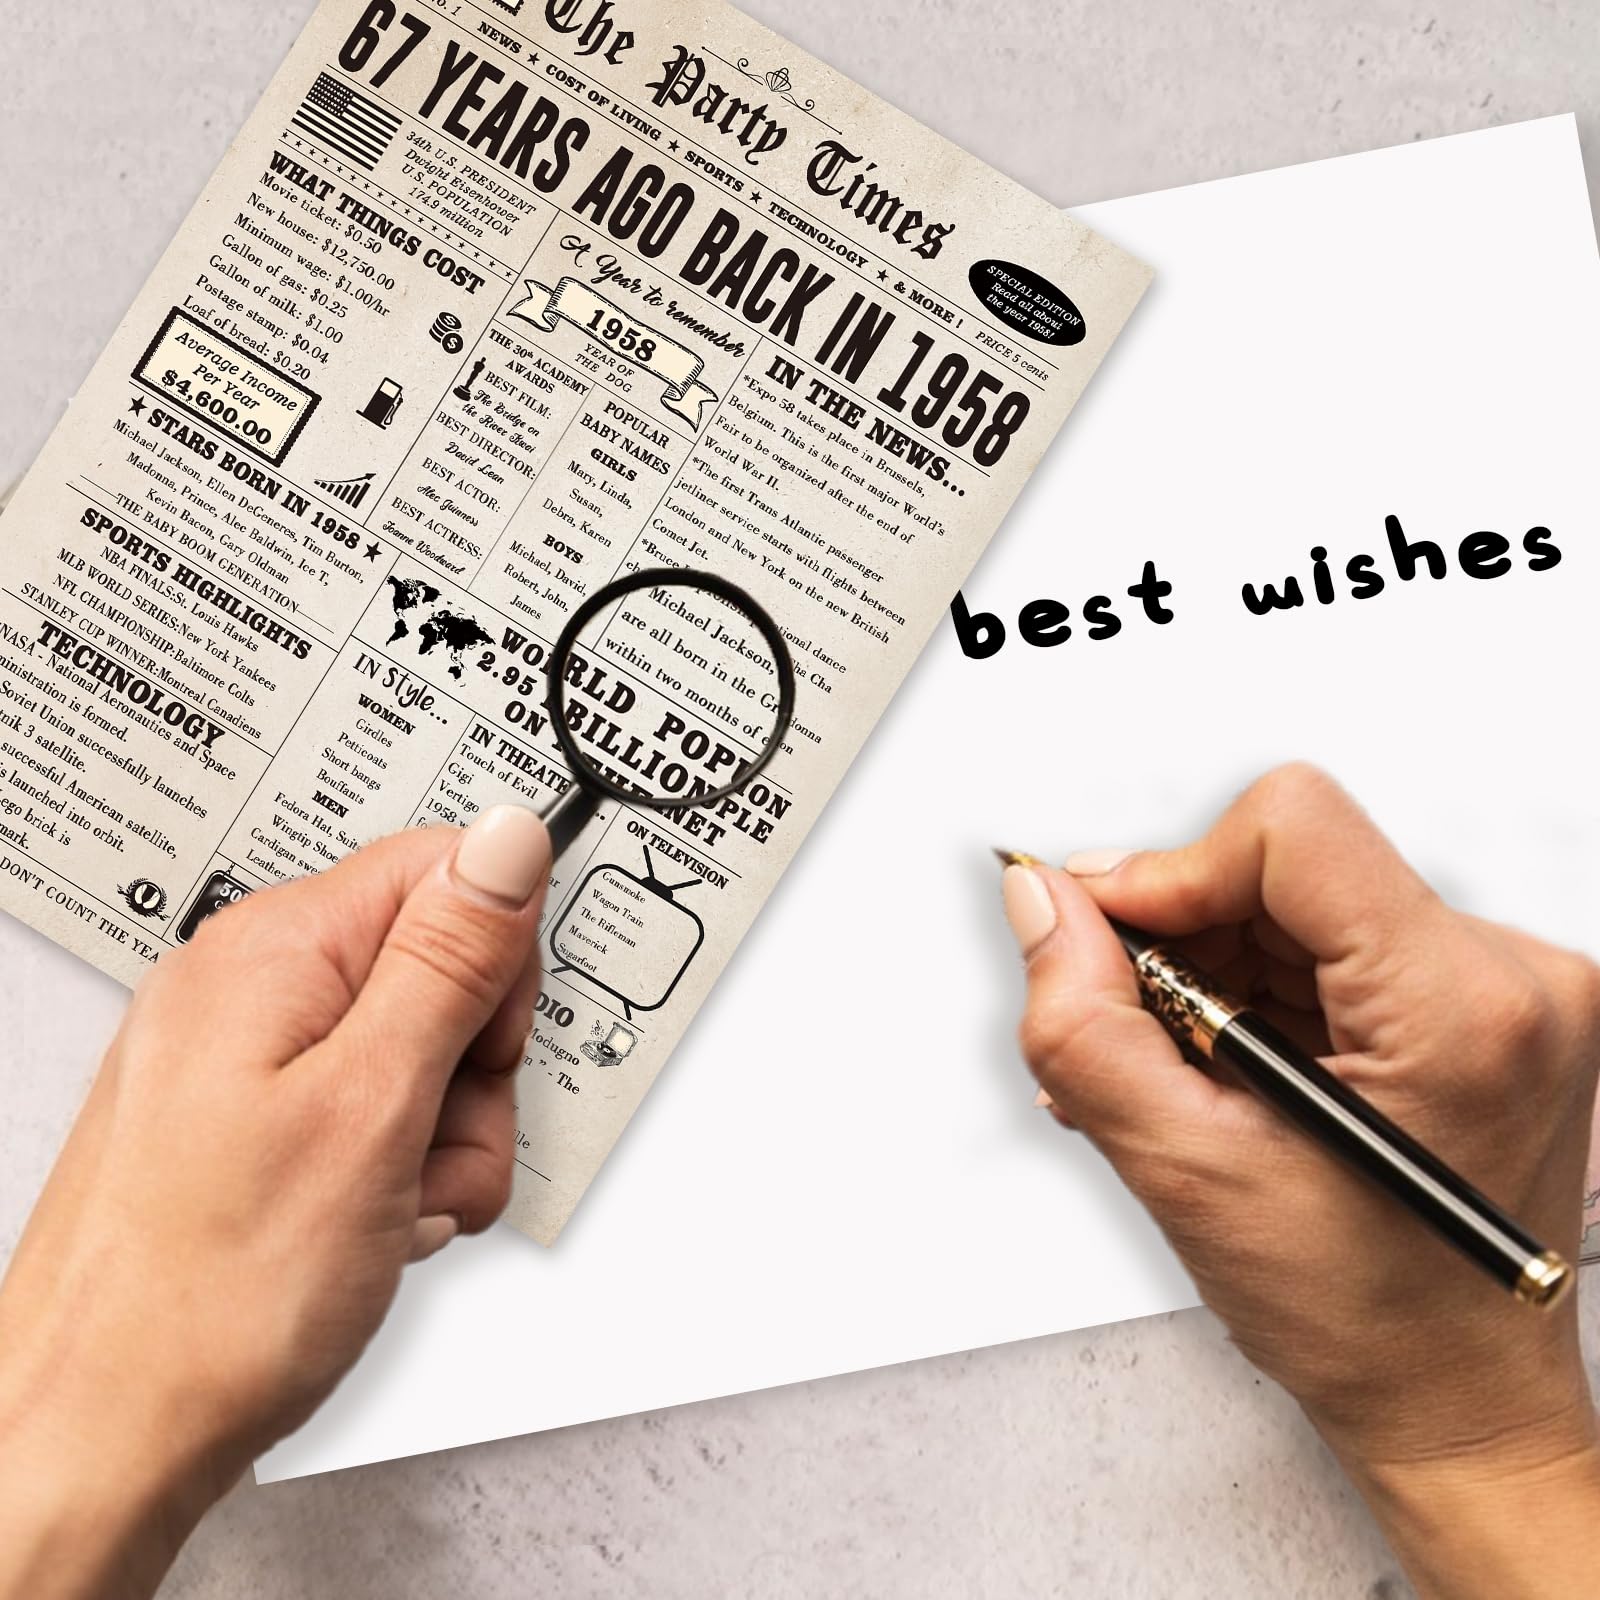 The Party Times
No. 1
NEWS ★ COST OF LIVING ★ SPORTS ★ TECHNOLOGY ★ & MORE! PRICE 5 cents
67 YEARS AGO BACK IN 1958
SPECIAL EDITION
Read all about
the year 1958!
34th U.S. PRESIDENT
Dwight Eisenhower
U.S. POPULATION
174.9 million
WHAT THINGS COST
Movie ticket: $0.50
New house: $12,750.00
Minimum wage: $1.00/hr
Gallon of gas: $0.25
Gallon of milk: $1.00
Postage stamp: $0.04
Loaf of bread: $0.20
Average Income
Per Year
$4,600.00
★ STARS BORN IN 1958 ★
Michael Jackson, Ellen DeGeneres, Tim Burton,
Madonna, Prince, Alec Baldwin, Ice T,
Kevin Bacon, Gary Oldman
THE BABY BOOM GENERATION
SPORTS HIGHLIGHTS
NBA FINALS:St. Louis Hawks
MLB WORLD SERIES:New York Yankees
NFL CHAMPIONSHIP:Baltimore Colts
STANLEY CUP WINNER:Montreal Canadiens
TECHNOLOGY
NASA - National Aeronautics and Space
ministration is formed.
Soviet Union successfully launches
tnik 3 satellite.
successful American satellite,
is launched into orbit.
ego brick is
mark.
DON'T COUNT THE YEA
A Year to remember
1958
YEAR OF
THE DOG
THE 30th ACADEMY
AWARDS
BEST FILM:
The Bridge on
the River Kwai
BEST DIRECTOR:
David Lean
BEST ACTOR:
Alec Guinness
BEST ACTRESS:
Joanne Woodward
POPULAR
BABY NAMES
GIRLS
Mary, Linda,
Susan,
Debra, Karen
BOYS
Michael, David,
Robert, John,
James
IN THE NEWS...
*Expo 58 takes place in Brussels,
Belgium. This is the first major World's
Fair to be organized after the end of
World War II.
*The first Trans Atlantic passenger
jetliner service starts with flights between
London and New York on the new British
Comet Jet.
*Bruce
ational dance
Cha Cha
Michael Jackson,
are all born in the
within two months of
WORLD POP
2.95 BILLION
ON
IN Style...
WOMEN
Girdles
Petticoats
Short bangs
Bouffants
MEN
Fedora Hat, Suit
Wingtip Shoe
Cardigan swe
Leather
IN THEATE
Touch of Evil
Gigi
Vertigo
1958
ON TELEVISION
Gunsmoke
Wagon Train
The Rifleman
Maverick
Sugarfoot
DIO
Modugno
" - The
best wishes